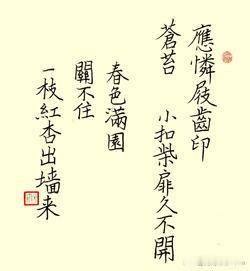 應憐屐齒印
蒼苔 小扣柴扉久不開
春色滿園
關不住
一枝紅杏出墻来